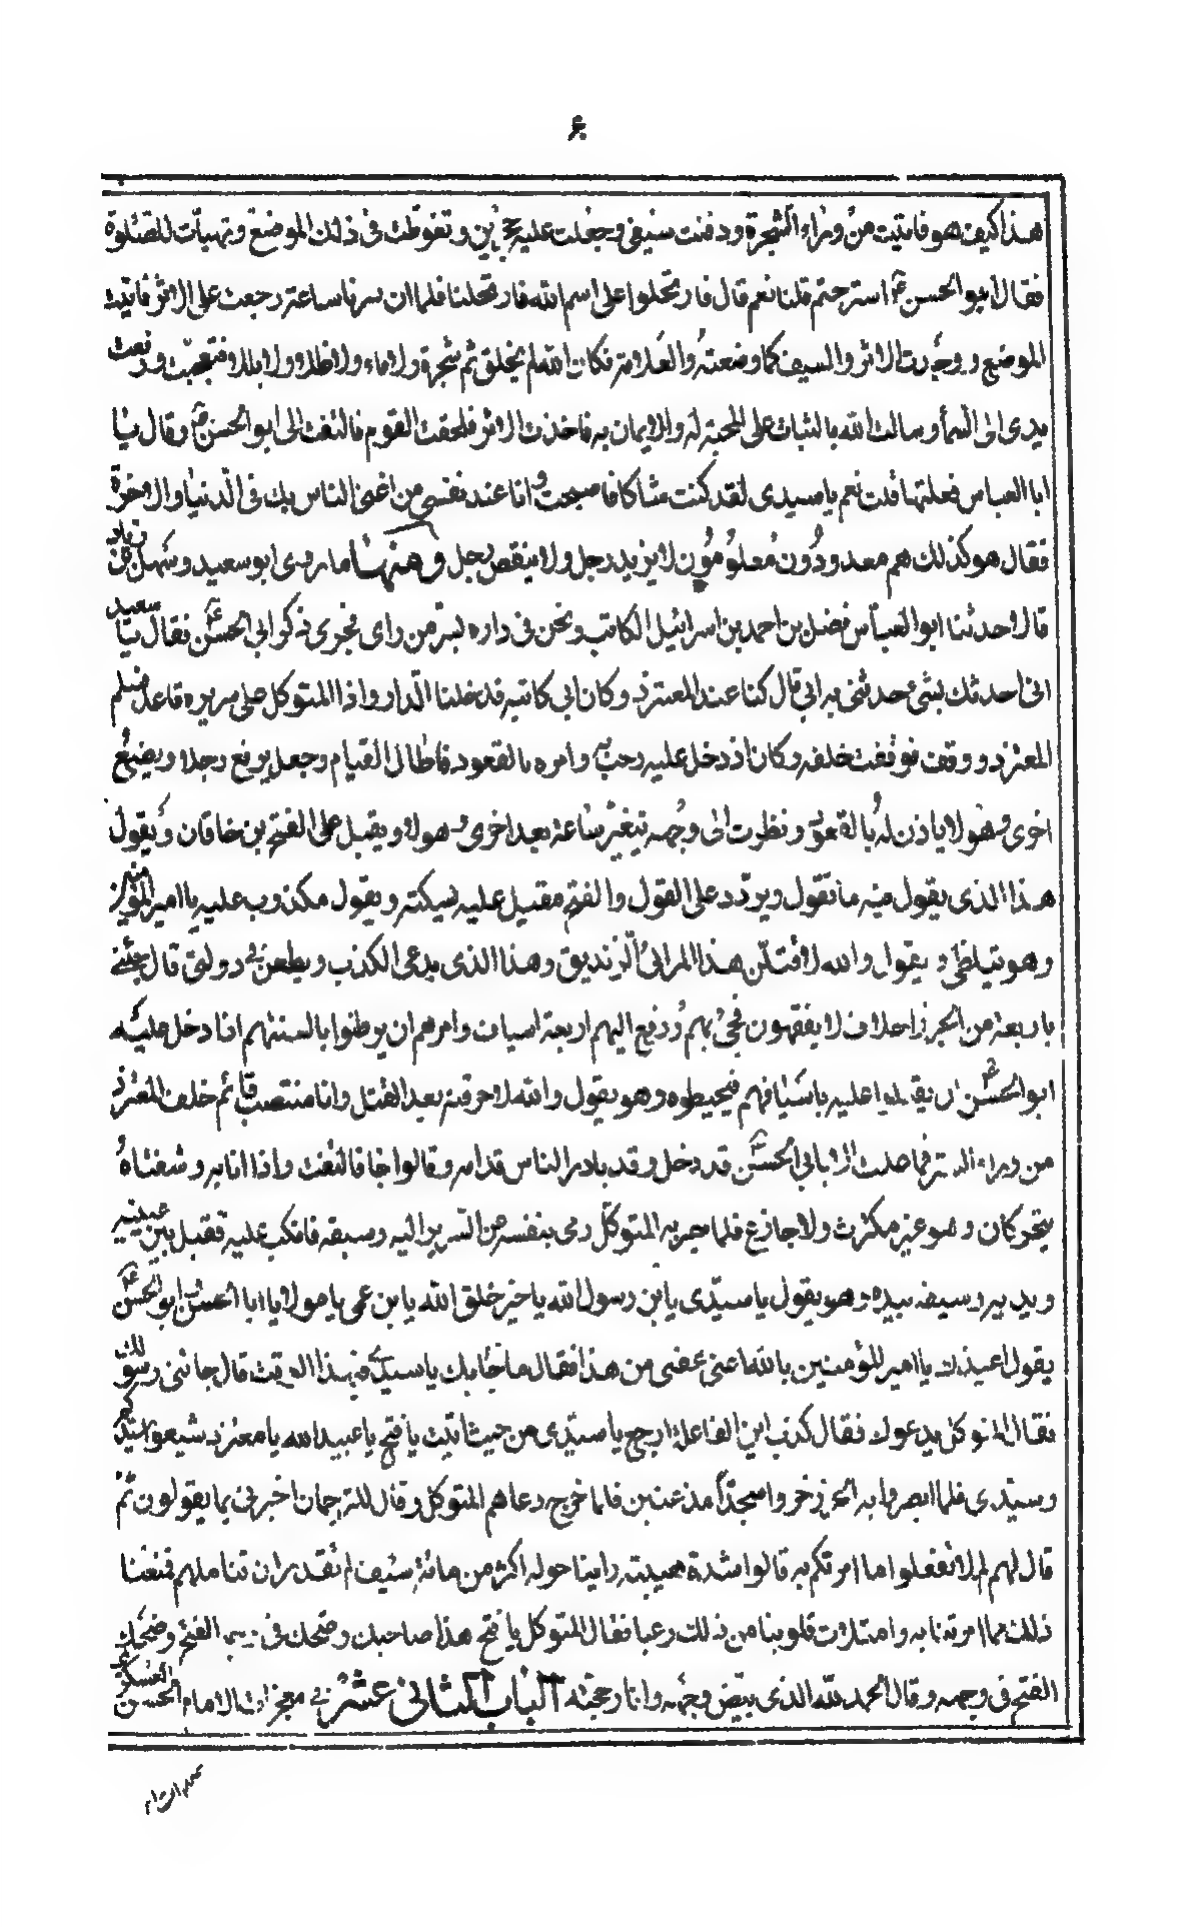 هذا كيف هو فاتيت من وراء الشجرة ودفنت سيفى وجعلت عليه حجرين وتغوطت فى ذلك الموضع وتهيات للصلوة
فقال ابو الحسن ع استرحتم قلنا نعم قال فارتحلوا على اسم الله فارتحلنا فلما ان سرنا ساعة رجعت على الاثر فاتيت
الموضع ووجدت الاثر والسيف كما وضعته والعلامة فكان الله لم يخلق ثم شجرة ولا ماء ولا ظلا ولا بللا فتعجبت ورفعت
يدى الى السماء وسالت الله بالثبات على المحبة له والايمان به فاخذت الاثر فلحقت القوم فالتفت الى ابو الحسن ع وقال يا
ابا العباس فعلتها قلت نعم يا سيدى لقد كنت شاكا فاصبحت وانا عند نفسى من اغنى الناس بك فى الدنيا والاخرة
فقال هو كذلك هم معدودون معلومون لا يزيد رجل ولا ينقص رجل ومنها ما روى ابو سعيد وسهل بن زياد
قال حدثنا ابو العباس فضل بن احمد بن اسرائيل الكاتب ونحن فى داره بسر من راى فجرى ذكر ابى الحسن ع فقال يا سعيد
انى احدثك بشئ حدثنى به ابى قال كنا عند المعتز وكان ابى كاتبه فدخلنا الدار واذا المتوكل على سريره قاعد فسلم
المعتز ووقف فوقفت خلفه وكان اذ دخل عليه رحب به وامره بالقعود فاطال القيام وجعل يرفع رجلا ويضع
اخرى وهو لا ياذن له بالقعود ونظرت الى وجهه يتغير ساعة بعد اخرى وهو لا ويقبل على الفتح بن خاقان ويقول
هذا الذى يقول فيه ما تقول ويردد على القول والفتح مقبل عليه يسكته ويقول مكذوب عليه يا امير المؤمنين
وهو يتلظى ويقول والله لاقتلن هذا المرائى الزنديق وهذا الذى يدعى الكذب ويطعن فى دولتى قال جئنى
باربعة من الخزر اجلاف لا يفقهون فجئ بهم ودفع اليهم اربعة اسياف وامرهم ان يرطنوا بالسنتهم اذا دخل عليه
ابو الحسن ع ان يقبلوا عليه باسيافهم فيخبطوه وهو يقول والله لاحرقنه بعد القتل وانا منتصب قائم خلف المعتز
من وراء الستر فما علمت الا بابى الحسن ع قد دخل وقد بادر الناس قدامه وقالوا جا فالتفت واذا انا به وشفتاه
يتحركان وهو غير مكترث ولا جازع فلما بصر به المتوكل رمى بنفسه من السرير اليه وسبقه فانكب عليه فقبل بين عينيه
ويديه وسيفه بيده وهو يقول يا سيدى يا بن رسول الله يا خير خلق الله يا بن عمى يا مولاى يا ابا الحسن وابو الحسن ع
يقول اعيذك يا امير المؤمنين بالله اعفنى من هذا فقال ما جاء بك يا سيدى فى هذا الوقت قال جائنى رسولك
فقال المتوكل يدعوك فقال كذب ابن الفاعلة ارجع يا سيدى من حيث اتيت يا فتح يا عبيد الله يا معتز شيعوا سيدكم
وسيدى فلما ابصروا به الخزر خروا سجدا مذعنين فلما خرج دعاهم المتوكل وقال للترجمان اخبرنى بما يقولون ثم
قال لهم لم لا تفعلوا ما امرتكم به قالوا شدة هيبته راينا حوله اكثر من مائة سيف لم نقدر ان نتاملهم فمنعنا
ذلك مما امرتنا به وامتلات قلوبنا من ذلك رعبا فقال المتوكل يا فتح هذا صاحبك وضحك فى وجه الفتح وضحك
الفتح فى وجهه وقال الحمد لله الذى بيض وجهه وانار حجته الباب الثانى عشر فى معجزات الامام الحسن العسكرى
عليه السلام